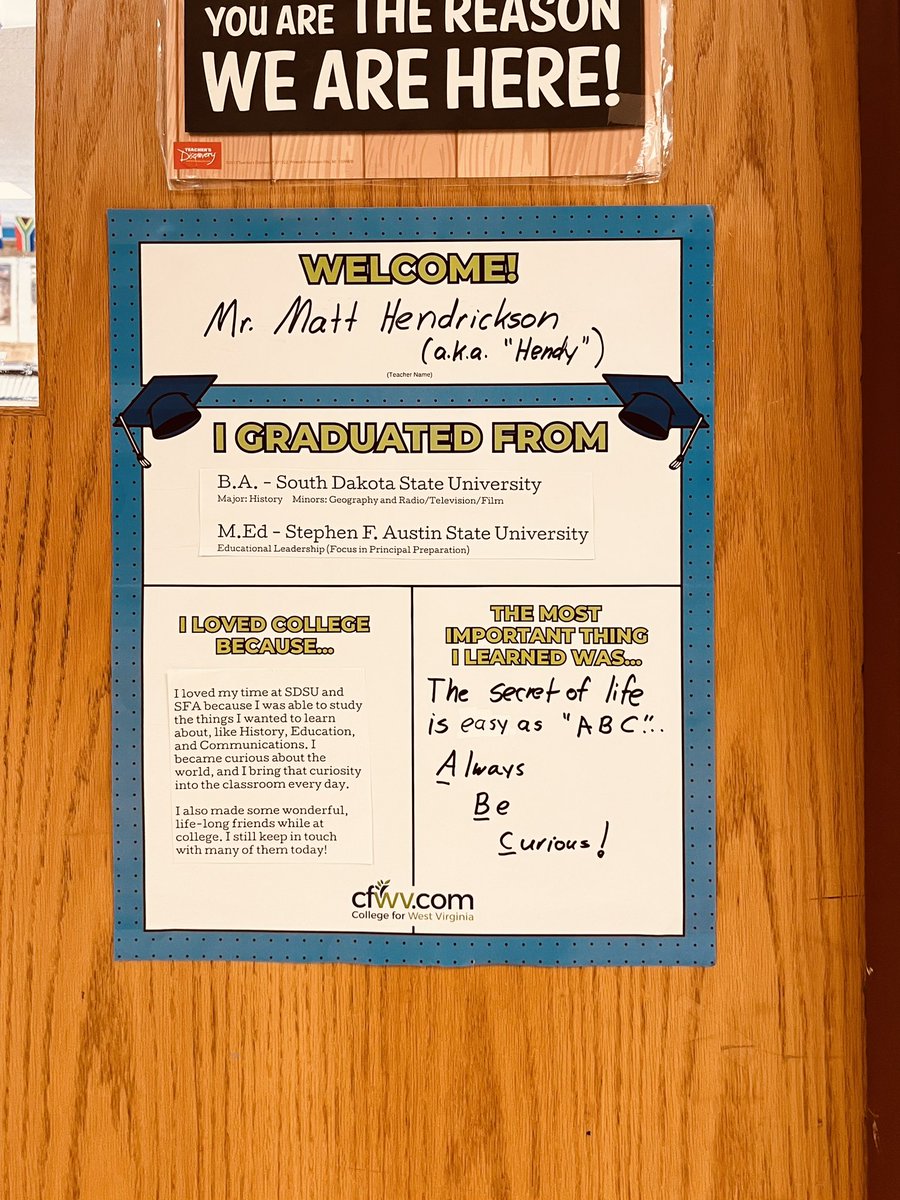 YOU ARE THE REASON
WE ARE HERE!
TEACHER'S
Discovery
WELCOME!
Mr. Matt Hendrickson
(a.k.a. "Hendy")
(Teacher Name)
I GRADUATED FROM
B.A. - South Dakota State University
Major: History Minors: Geography and Radio/Television/Film
M.Ed - Stephen F. Austin State University
Educational Leadership (Focus in Principal Preparation)
I LOVED COLLEGE
BECAUSE...
I loved my time at SDSU and
SFA because I was able to study
the things I wanted to learn
about, like History, Education,
and Communications. I
became curious about the
world, and I bring that curiosity
into the classroom every day.
I also made some wonderful,
life-long friends while at
college. I still keep in touch
with many of them today!
THE MOST
IMPORTANT THING
I LEARNED WAS...
The secret of life
is easy as "ABC"...
Always
Be
Curious!
cfwv.com
College for West Virginia